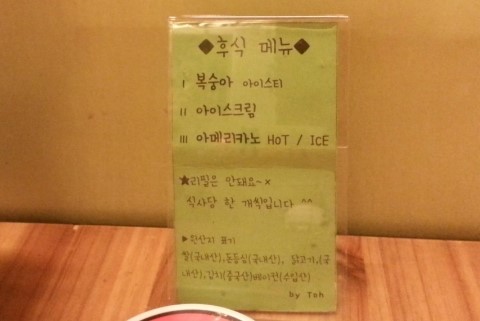 ◆후식 메뉴◆
I 복숭아 아이스티
II 아이스크림
III 아메리카노 HOT / ICE
★리필은 안돼요~x
식사당 한 개씩입니다 ^^
▶원산지 표기
쌀(국내산),돈등심(국내산), 닭고기,(국
내산),김치(중국산)베이컨(수입산)
by Toh